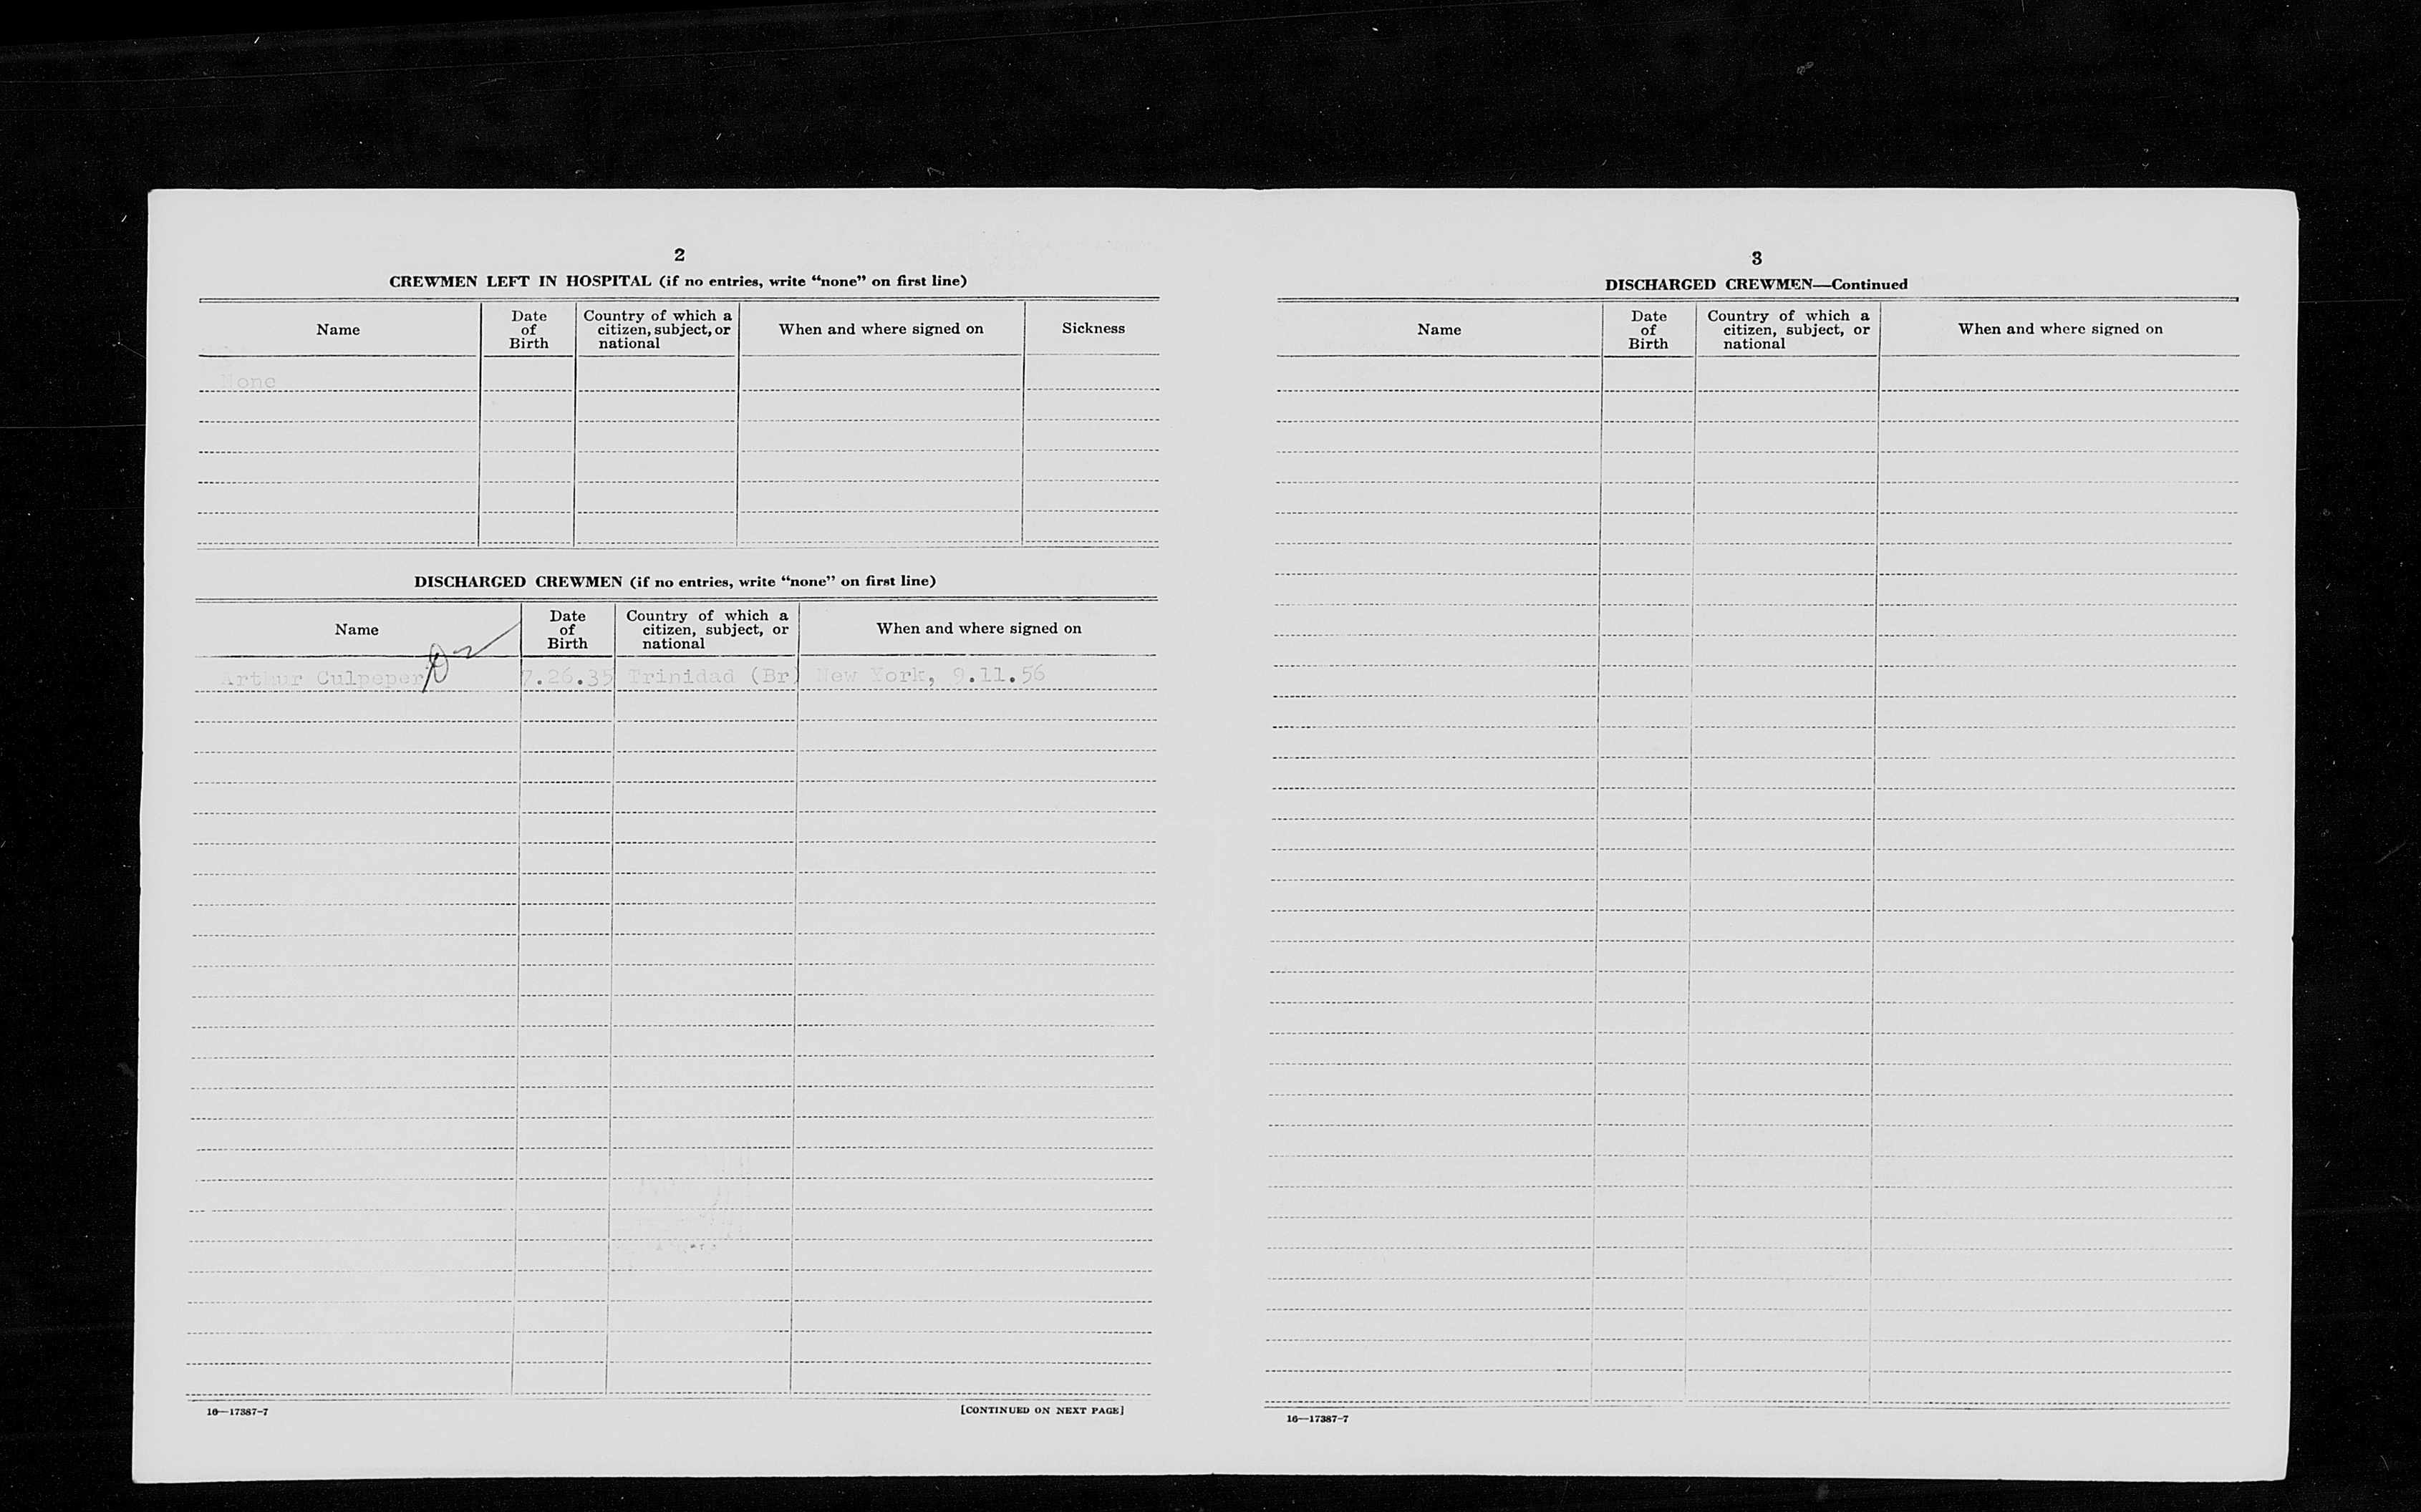 2
CREWMEN LEFT IN HOSPITAL (if no entries, write “none” on first line)
Name
Date of Birth
Country of which a citizen, subject, or national
When and where signed on
Sickness
None
DISCHARGED CREWMEN (if no entries, write “none” on first line)
Name
Date of Birth
Country of which a citizen, subject, or national
When and where signed on
Arthur Culpeper 7.26.35 Trinidad (Br) New York, 9.11.56
16—17387-7
[CONTINUED ON NEXT PAGE]
3
DISCHARGED CREWMEN—Continued
Name
Date of Birth
Country of which a citizen, subject, or national
When and where signed on
16—17387-7